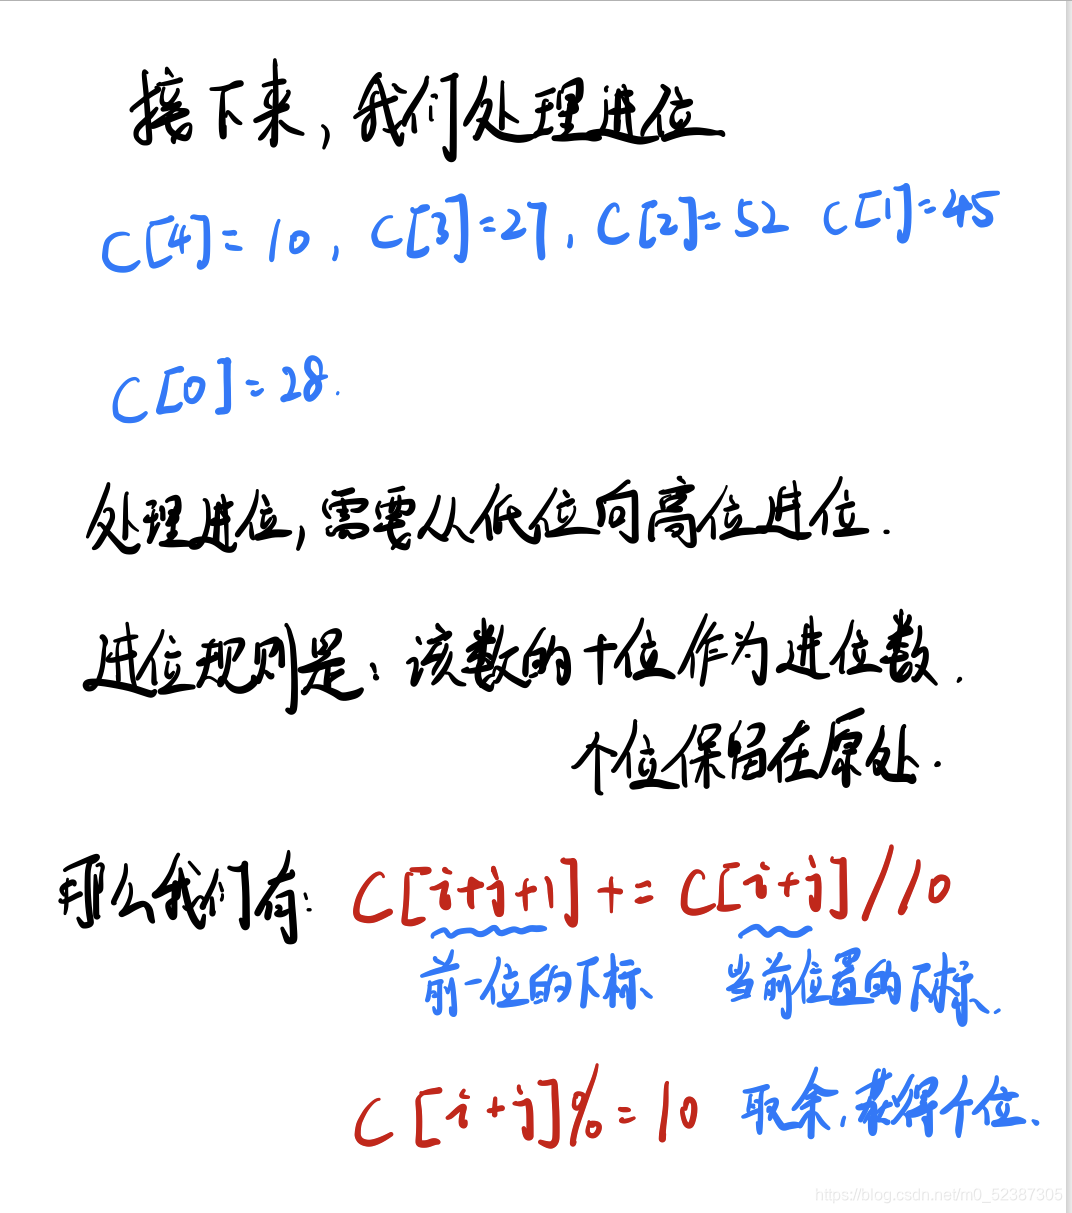 接下来，我们处理进位
C[4]=10, C[3]=27, C[2]=52 C[1]=45
C[0]=28.
处理进位,需要从低位向高位进位.
进位规则是：该数的十位作为进位数.
个位保留在原处.
那么我们有: C[i+j+1]+=C[i+j]//10
前一位的下标 当前位置的下标.
C[i+j]%=10 取余,获得个位.
https://blog.csdn.net/m0_52387305